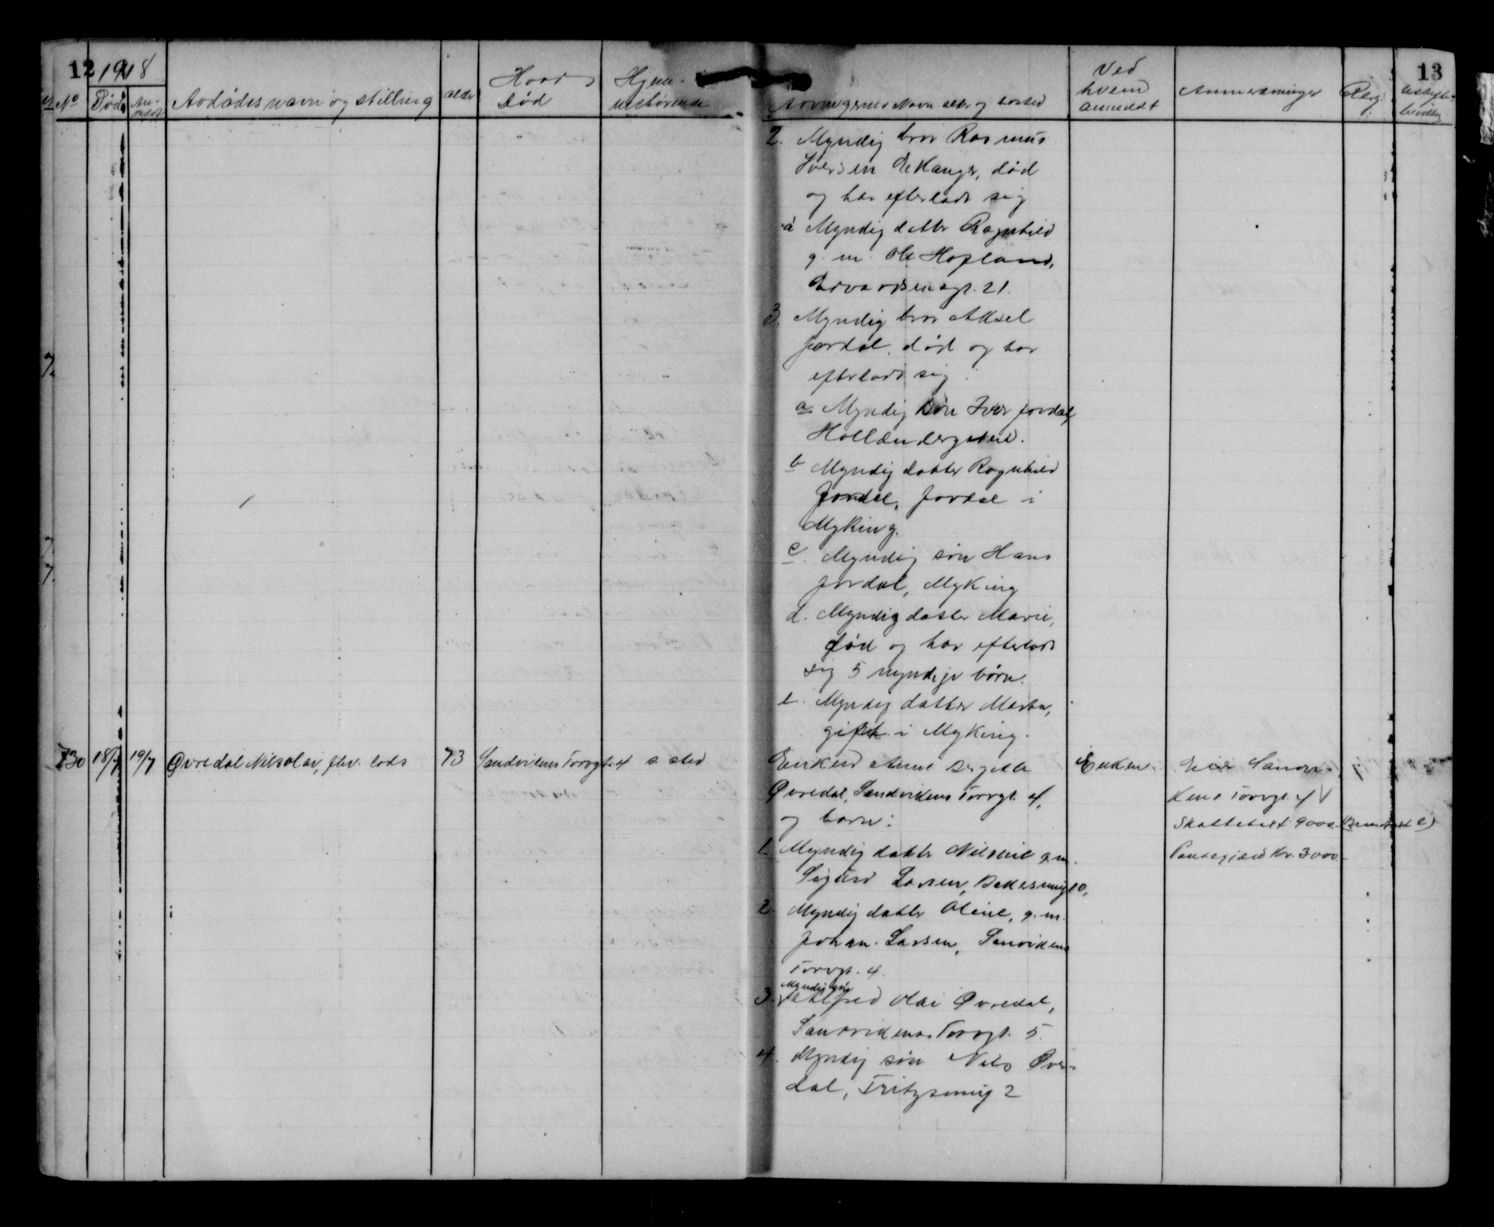 12 1918
No Død An-meldt Avdødes navn og stilling alder Hvor Død Hjem-
Arvingernes Navn alder og bosted Ved hvem anmeldt Anmerkninger Reg. 13
2. Myndig bror Rasmus
Iversen død
og har efterladt sig
a Myndig datter Ragnhild
g. m. Ole Hopland,
Edvardsensgt. 21.
3. Myndig bror Aksel
Jordal, død og har
efterladt sig:
a Myndig søn Iver Jordal,
Hollændergaten.
b Myndig datter Ragnhild
Jordal, Jordal i
Myking.
c. Myndig søn Hans
Jordal, Myking
d. Myndig datter Marie,
død og har efterladt
sig 5 myndige børn.
e. Myndig datter Marta,
gift i Myking.
730 18/7 19/7 Øvredal Nikolai, fhv. lods 73 Sandvikens Torvgt. 4 s. sted
Enken Anne Bergitte
Øvredal, Sandvikens Torvgt. 4,
og barn:
1 Myndig datter g.m.
Sigurd Larsen, 10,
2 Myndig datter Oline, g.m.
Johan Larsen, Sandvikens
Torvgt. 4.
Myndig søn
3. Alfred Olai Øvredal,
Sandvikens Torvgt. 5.
4. Myndig søn Nils Øvre-
dal, Fritzsmug 2
Enken.
Eier Sandvi-
kens Torvgt. 4
Skattetakst 9000
Pantegjæld kr. 3000
7.
7
7.